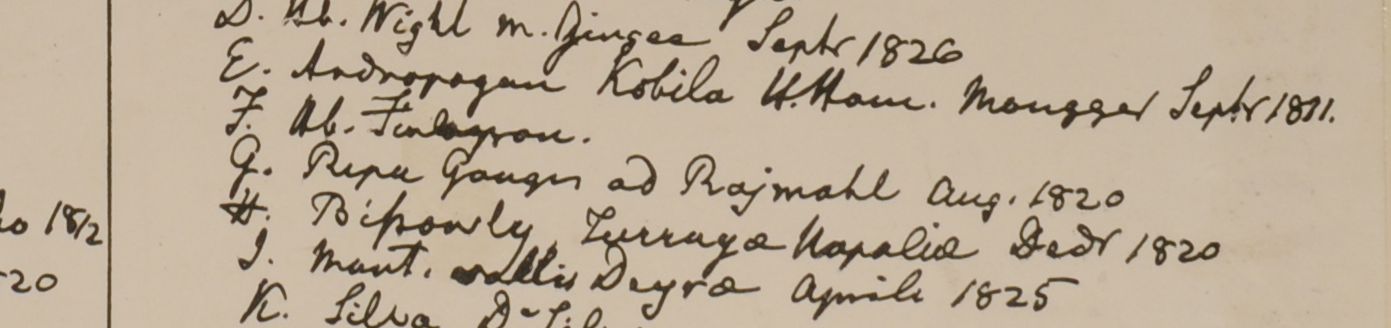 D. Hb. Wight m. Gingee Septr 1826
E. Andropogon Kobila H. Ham. Mongger Septr 1811.
F. Hb. Finlayson.
G. Ripa Gangis ad Rajmahl Aug. 1820
lo 1812
H. Bissowly, Turraya Napalia Decbr 1820
I. Mont. vallis Deyra Aprili 1825
20
K. Silva